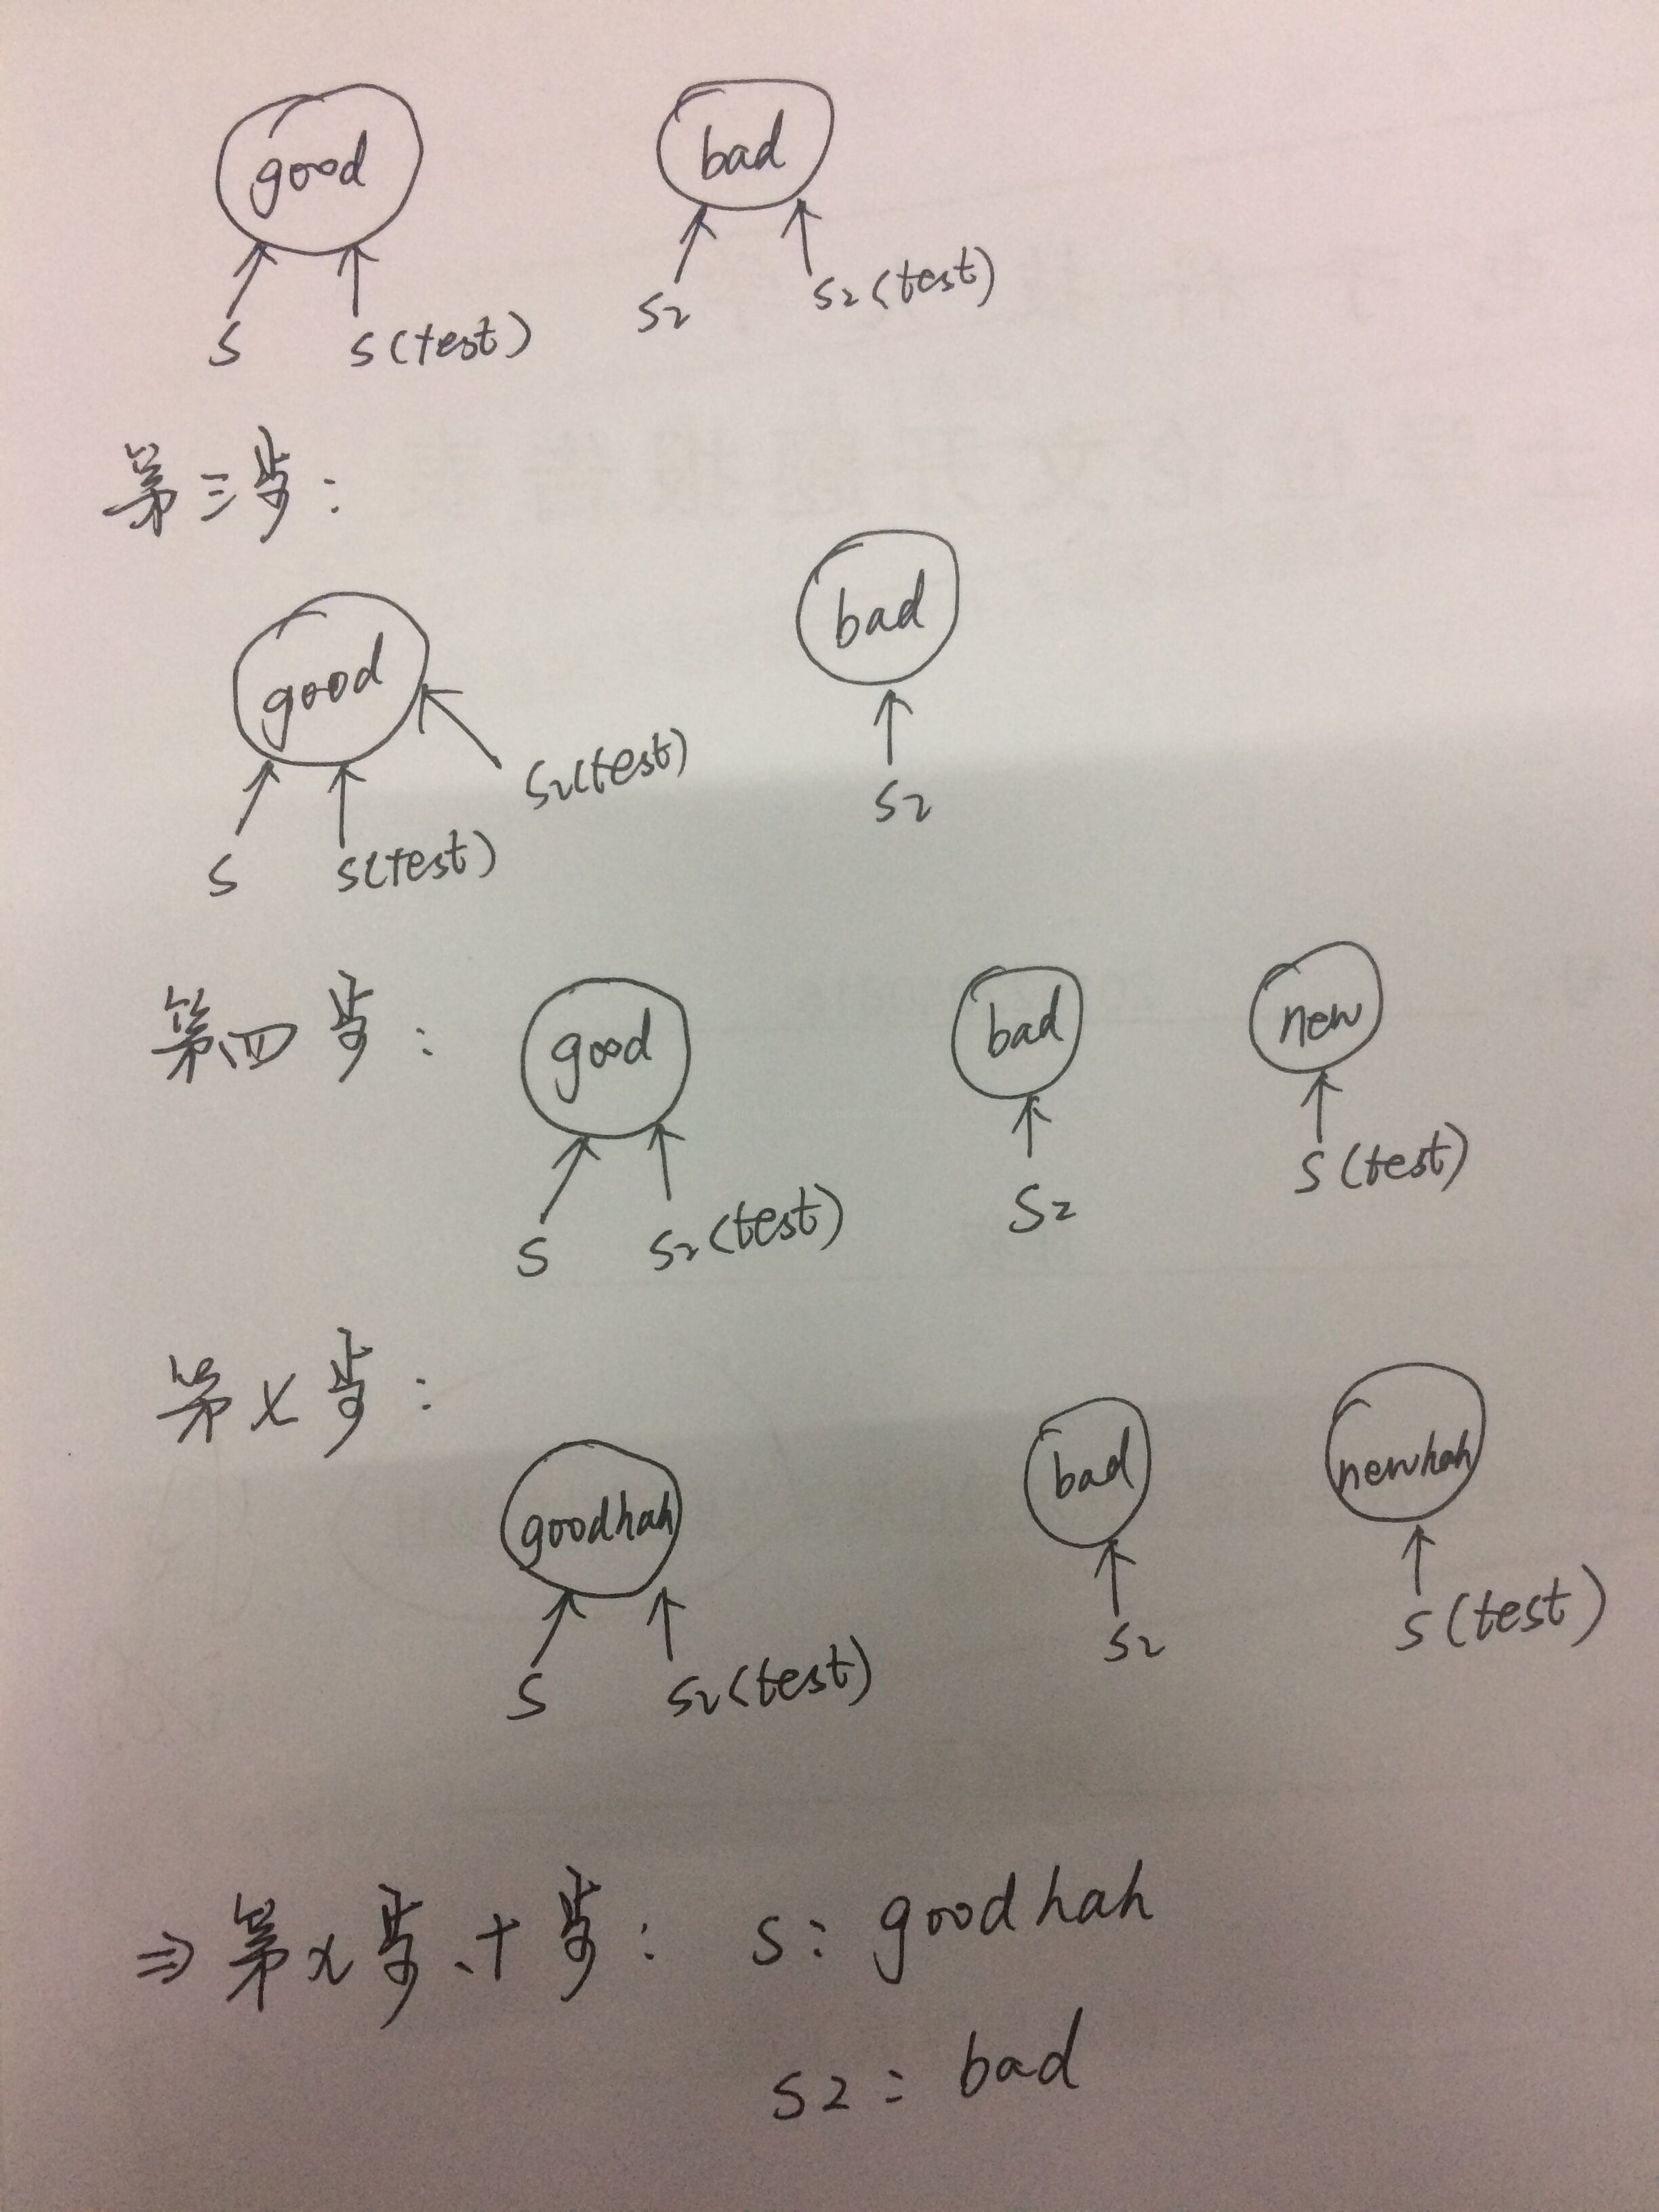 good bad
s s(test) s2 s2(test)
第三步:
good bad
s s(test) s2(test) s2
第四步: good bad new
s s2(test) s2 s(test)
第x步:
goodhah bad newhah
s s2(test) s2 s(test)
⇒ 第x步、十步: s: goodhah
s2: bad